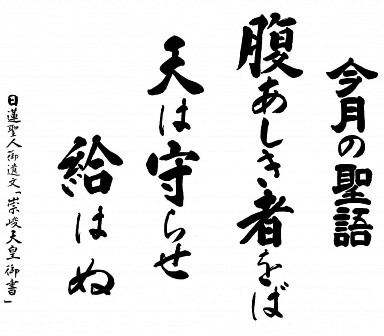 今月の聖語
腹あしき者をば
天は守らせ
給はぬ
日蓮聖人御遺文「崇峻天皇御書」